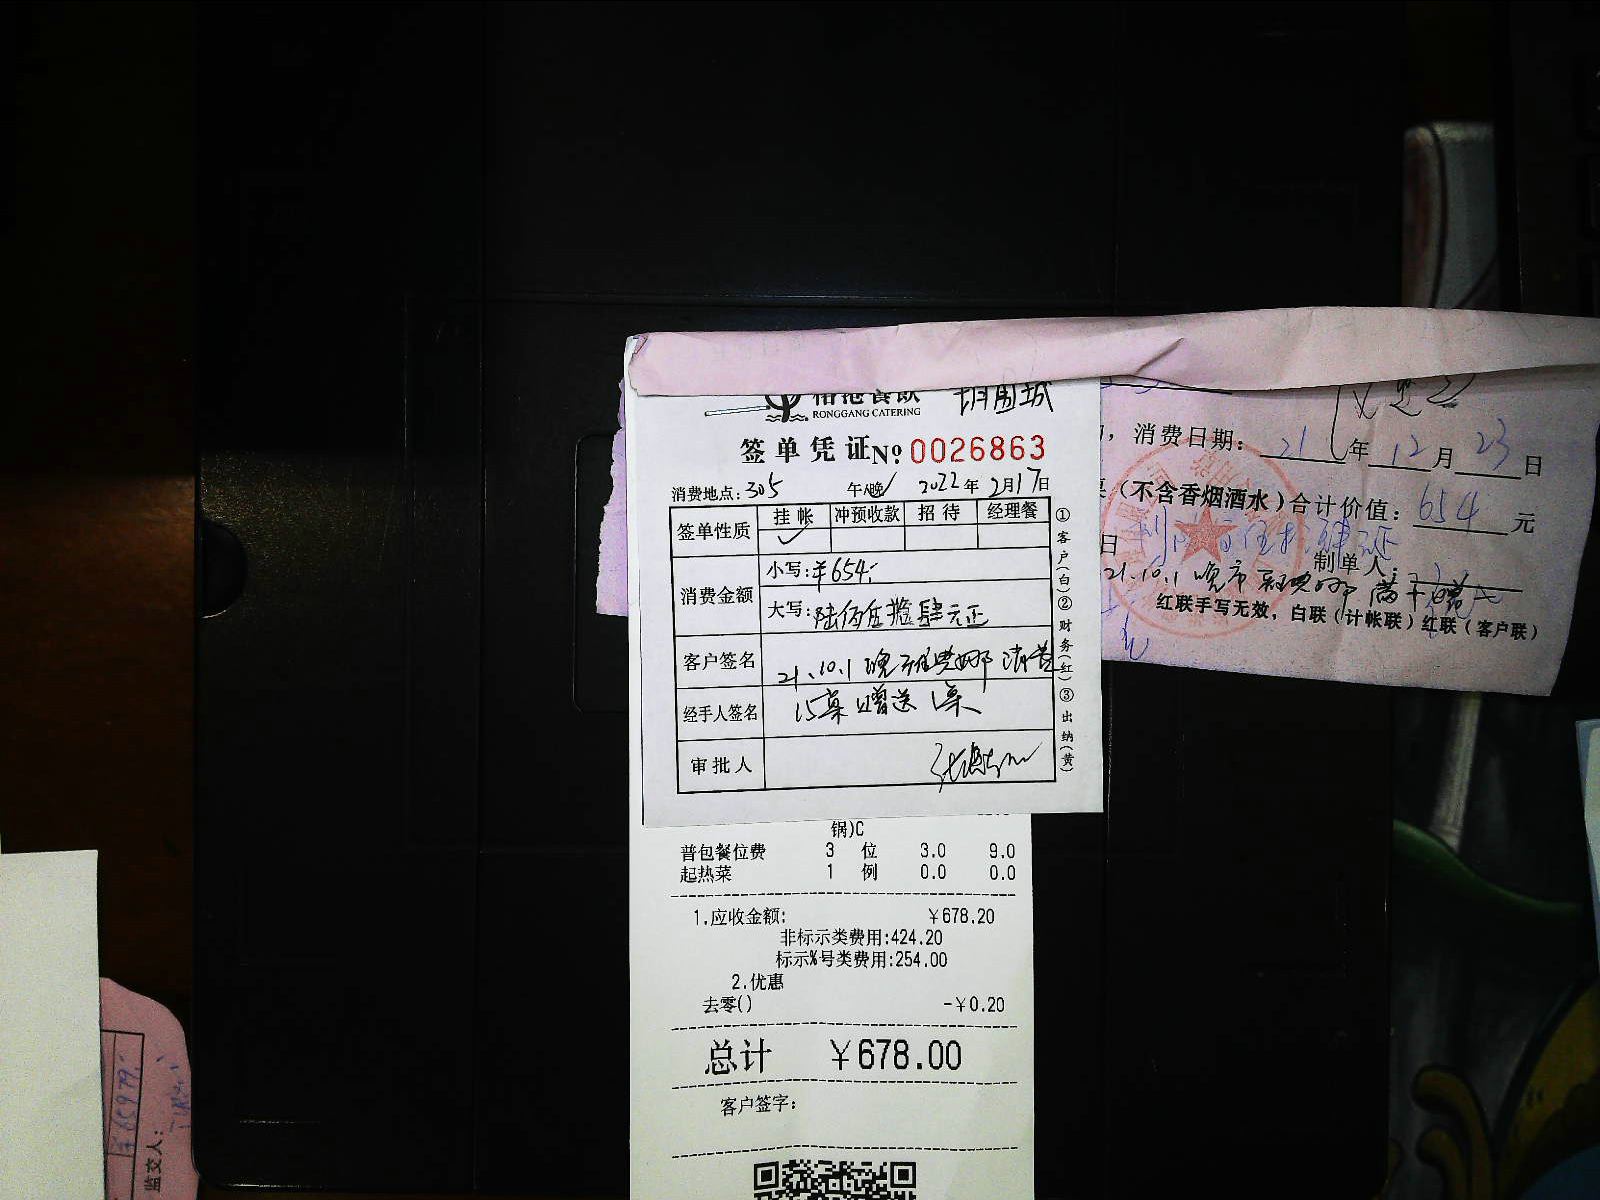 RONGGANG CATERING
签单凭证 № 0026863
消费地点:305 午/晚 2022年2月17日
签单性质 挂帐 冲预收款 招待 经理餐
✓
消费金额 小写:¥654
大写:陆佰伍拾肆元正
客户签名 21.10.1 晚
经手人签名 15桌赠送1桌
审批人
①客户(白)②财务(红)③出纳(黄)
锅)C
普包餐位费 3 位 3.0 9.0
起热菜 1 例 0.0 0.0
1.应收金额: ¥678.20
非标示类费用:424.20
标示%号类费用:254.00
2.优惠
去零() -¥0.20
总计 ¥678.00
客户签字:
，消费日期: 21年12月23日
(不含香烟酒水)合计价值: 654元
日
制单人:
21.10.1 晚市
红联手写无效，白联(计帐联)红联(客户联)
监交人: